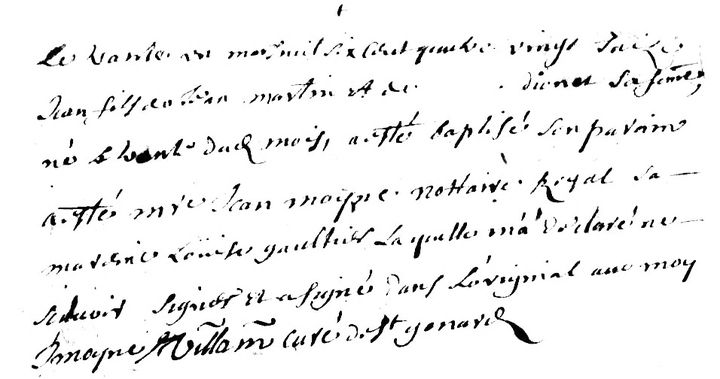 Le vante un mil six cent quatre vings saize
Jean fils de Jean martin et de dionet sa feme,
né le vante dud mois, a esté baptisé son parain
a esté mre Jean moyne nottaire Royal sa
mareine Louise gaultier Laquelle m'a déclaré ne
scavoir signer et a signé dans L'original avec moy
J moyne curé de st genard